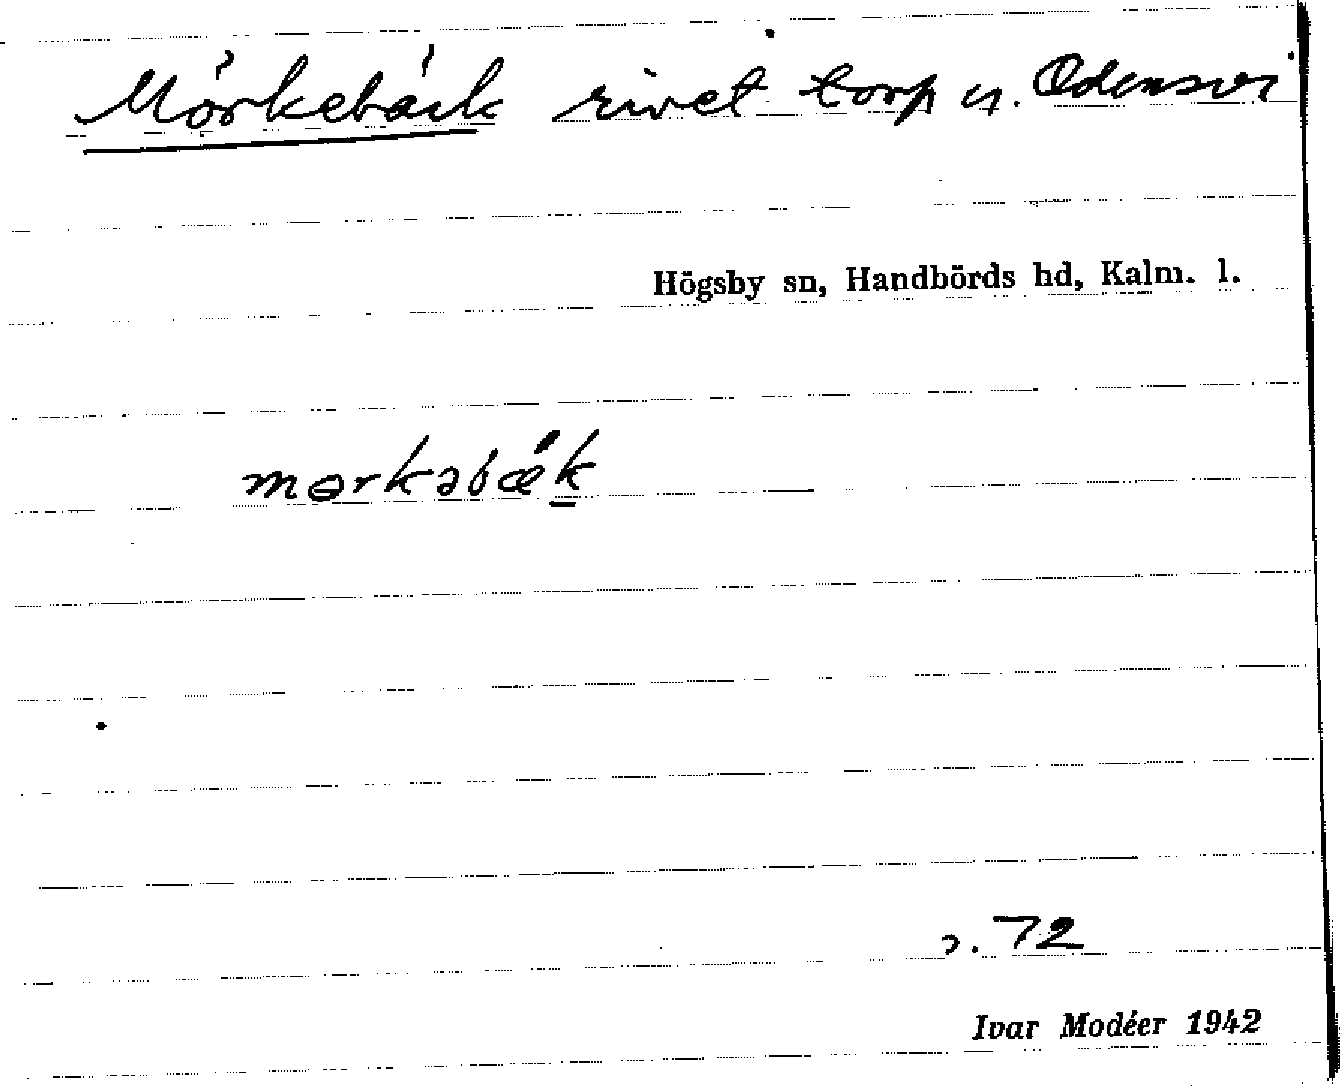 Mörkebäck rivet torp u. Odensvi
Högsby sn, Handbörds hd, Kalm. l.
mərkəbæ̀k
s. 72
Ivar Modéer 1942